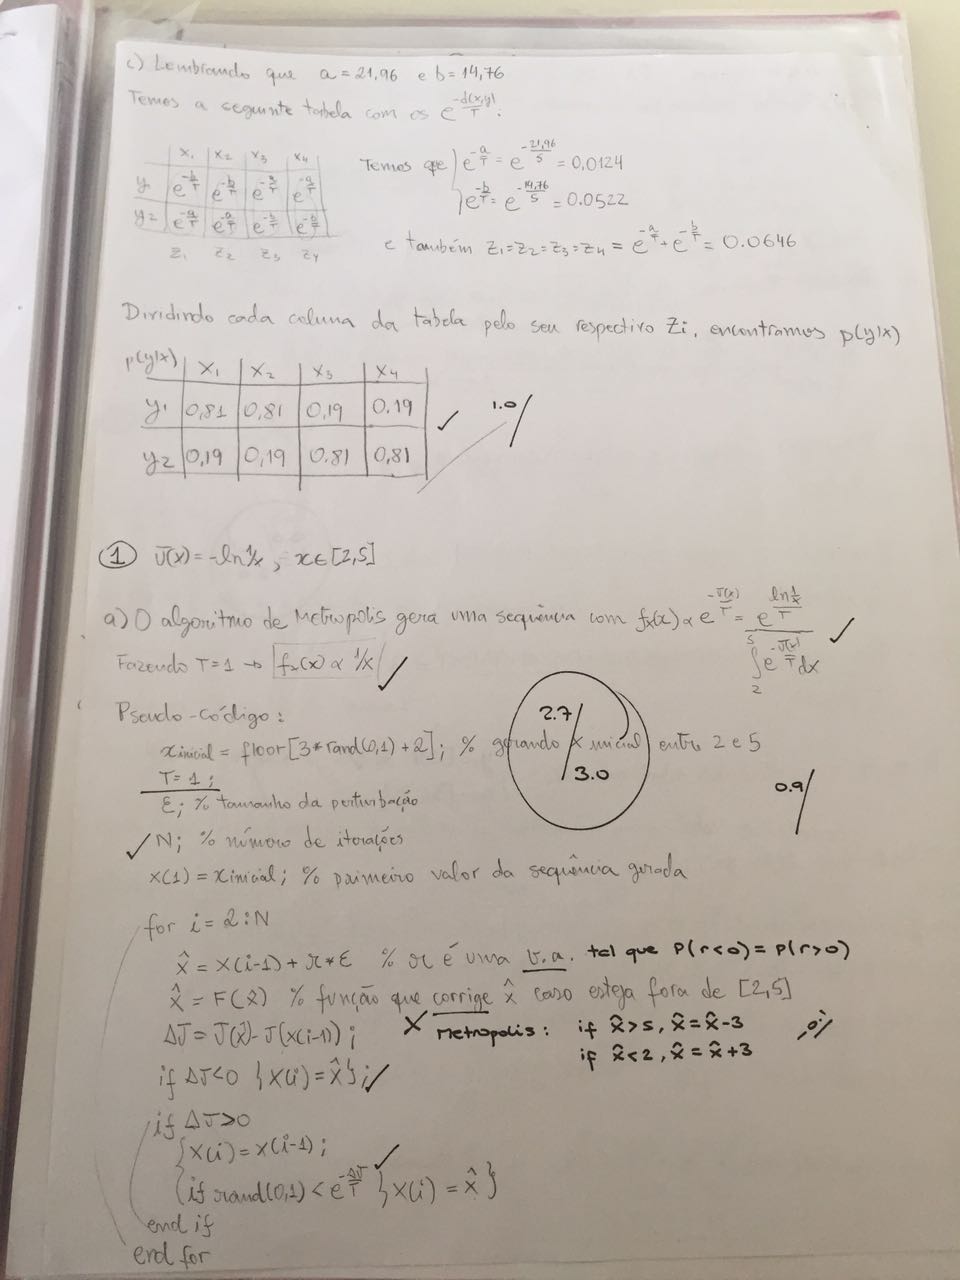 c) Lembrando que a = 21,96 e b = 14,76
Temos a seguinte tabela com os e^{-d(x,y)/T}:
x₁ x₂ x₃ x₄
y₁ e^{-b/T} e^{-b/T} e^{-a/T} e^{-a/T}
y₂ e^{-a/T} e^{-a/T} e^{-b/T} e^{-b/T}
z₁ z₂ z₃ z₄
Temos que e^{-a/T} = e^{-21,96/5} = 0,0124
e^{-b/T} = e^{-14,76/5} = 0.0522
e também z₁=z₂=z₃=z₄ = e^{-a/T} + e^{-b/T} = 0.0646
Dividindo cada coluna da tabela pelo seu respectivo Zi, encontramos p(y|x)
p(y|x) x₁ x₂ x₃ x₄
y₁ 0,81 0,81 0,19 0.19 ✓
y₂ 0,19 0,19 0.81 0,81
1.0/
① J(x) = -ln 1/x, x∈[2,5]
a) O algoritmo de Metropolis gera uma sequência com fx(x) ∝ e^{-J(x)/T} = e^{ln(1/x)/T} / ∫₂⁵ e^{-J(x)/T} dx ✓
Fazendo T=1 → fx(x) ∝ 1/x ✓
Pseudo-código:
2.7/3.0
xinicial = floor[3*rand(0,1)+2]; % gerando x inicial entre 2 e 5
T = 1;
0.9/
ε; % tamanho da perturbação
✓ N; % número de iterações
x(1) = xinicial; % primeiro valor da sequência gerada
for i = 2:N
x̂ = x(i-1) + r*ε % r é uma v.a. tal que P(r<0) = P(r>0)
x̂ = F(x̂) % função que corrige x̂ caso esteja fora de [2,5]
ΔJ = J(x̂) - J(x(i-1));
X Metropolis: if x̂>5, x̂=x̂-3
if x̂<2, x̂=x̂+3
if ΔJ<0 {x(i) = x̂}; ✓
if ΔJ>0
{x(i) = x(i-1);
{if rand(0,1) < e^{-ΔJ/T} {x(i) = x̂} ✓
end if
end for